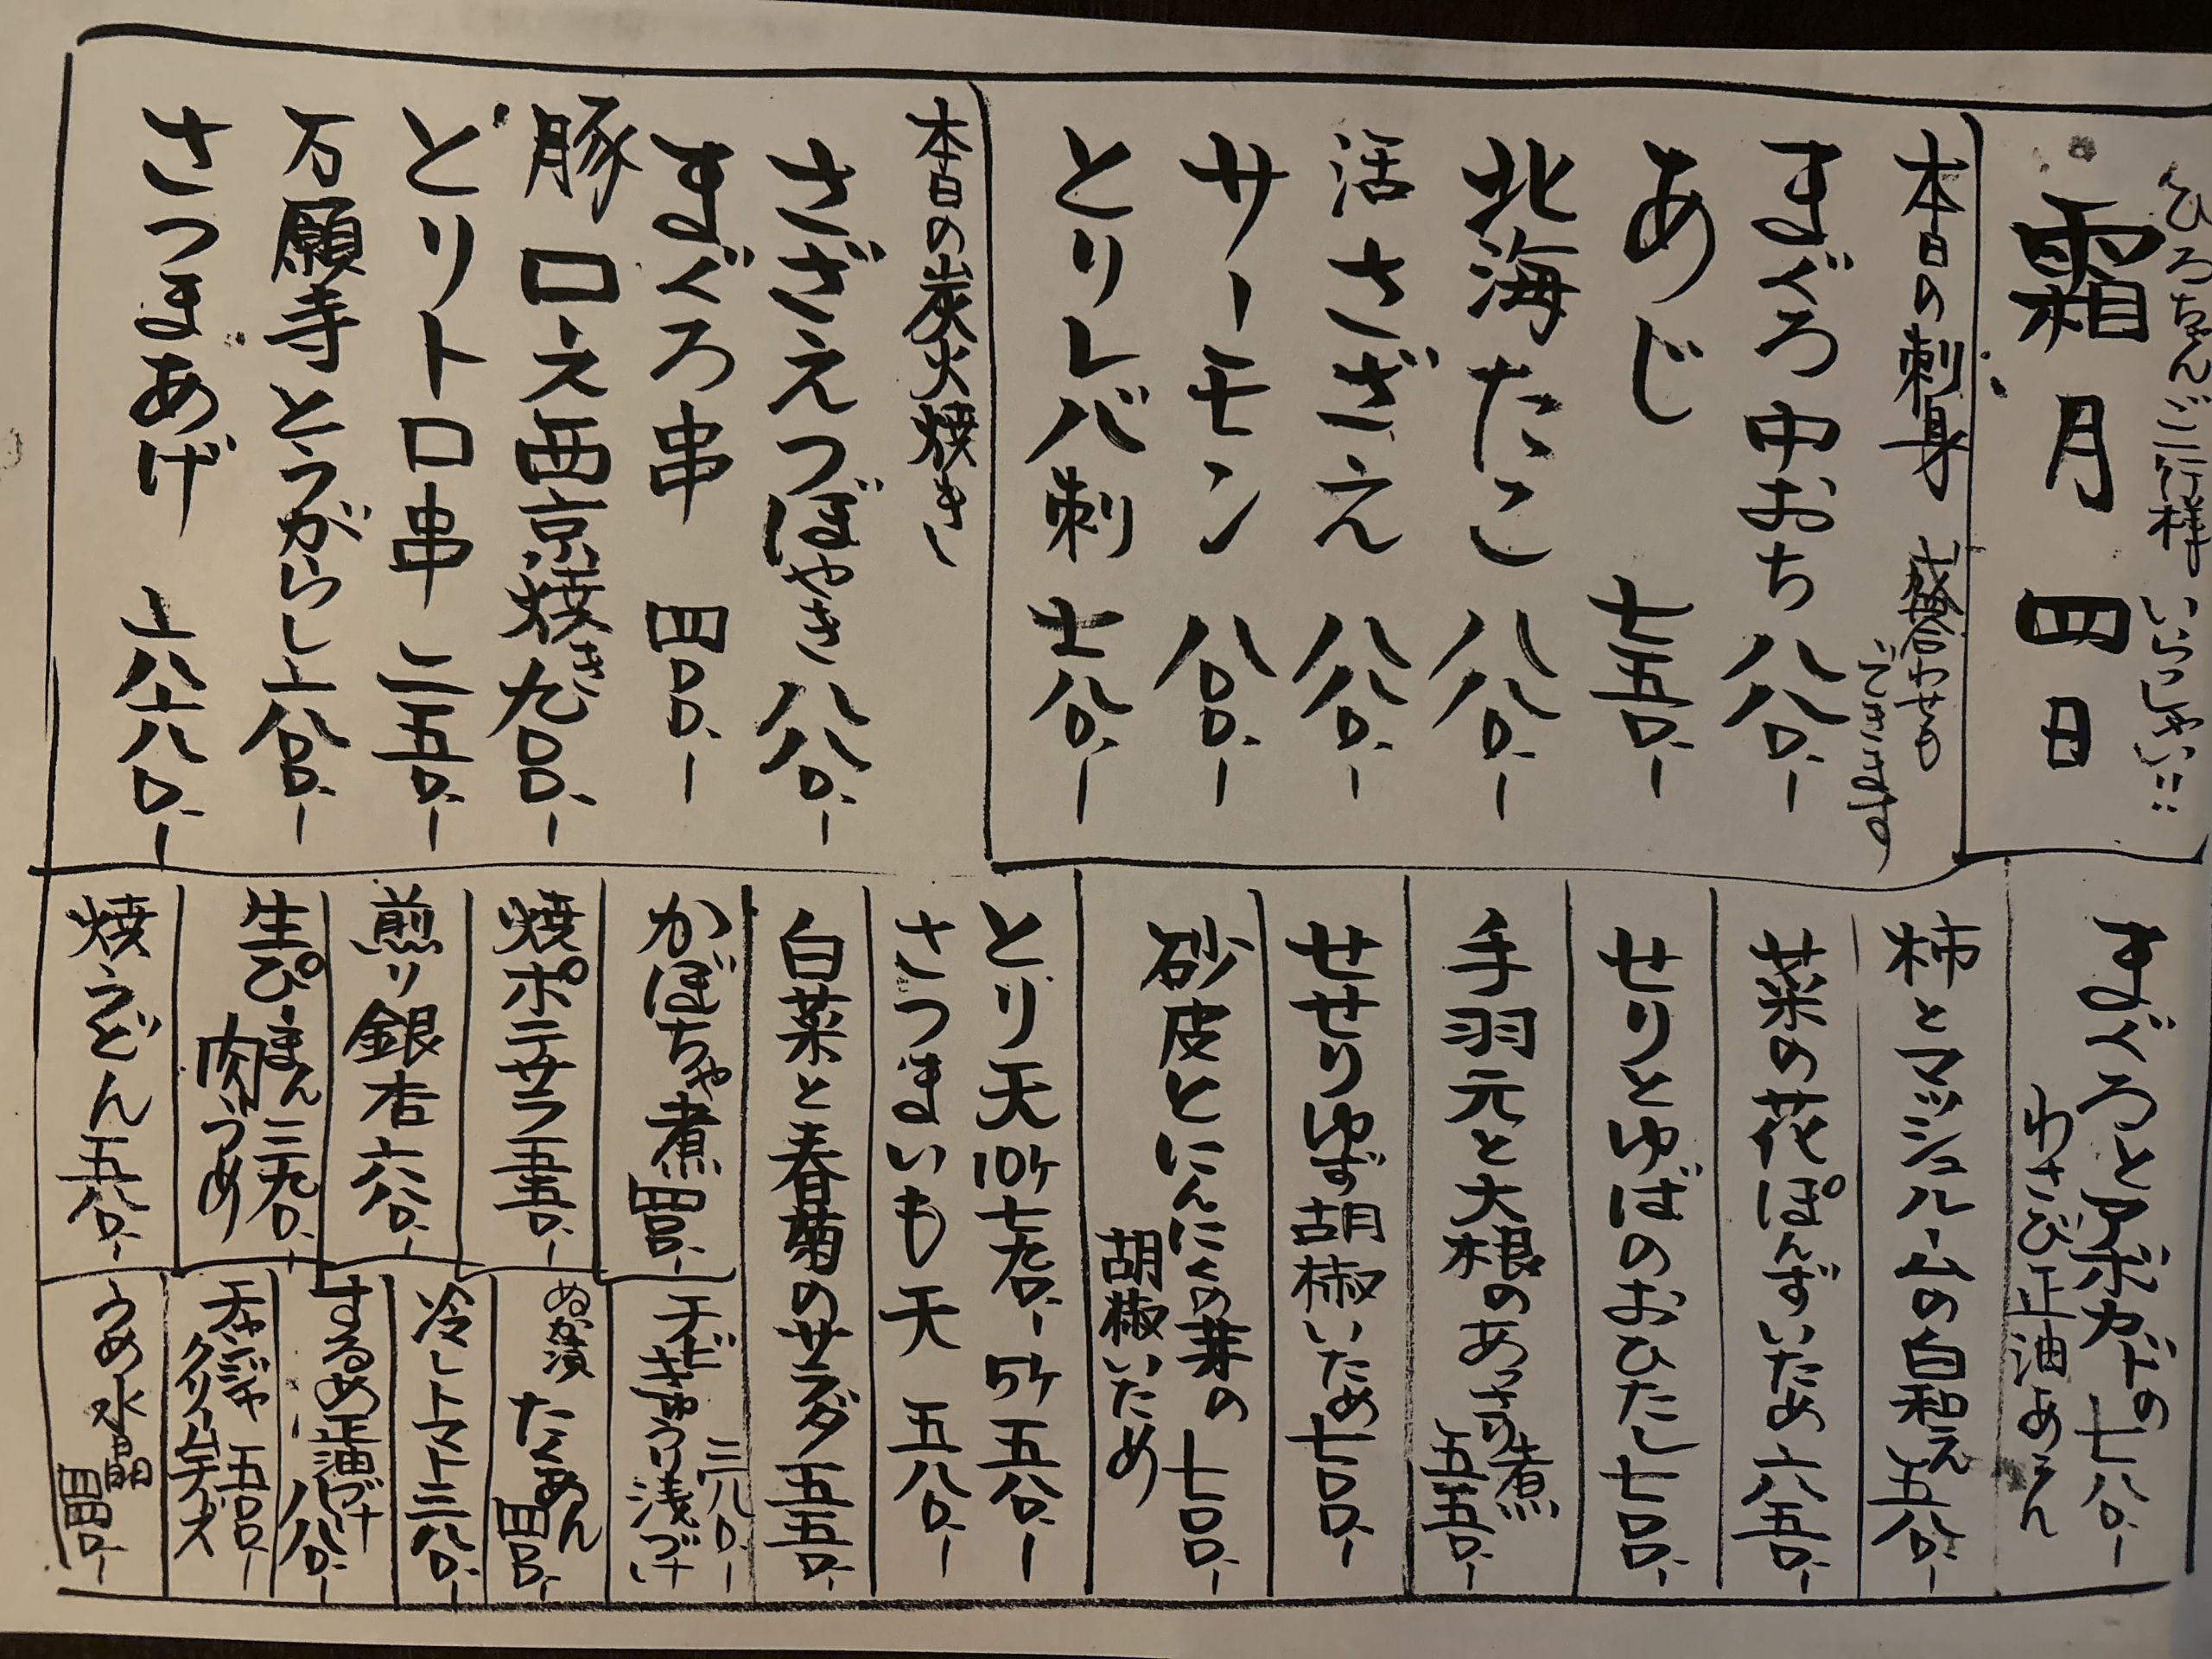 ひろちゃんご一行様 いらっしゃい!!
霜月四日
本日の刺身 盛合わせも
できます
まぐろ中おち 八八〇.ー
あじ 七五〇.ー
北海たこ 八八〇.ー
活さざえ 八八〇.ー
サーモン 八八〇.ー
とりレバ刺 七八〇.ー
本日の炭火焼き
さざえつぼやき 八八〇.ー
まぐろ串 四〇〇.ー
豚ロース西京焼き 九〇〇.ー
とりトロ串 二五〇.ー
万願寺とうがらし
さつまあげ
まぐろとアボカドの 七八〇.ー
わさび正油あえ
柿とマッシュルームの白和え 五八〇.ー
菜の花ぽんずいため 六五〇.ー
せりとゆばのおひたし 七〇〇.ー
手羽元と大根のあっさり煮
五五〇.ー
せせりゆず胡椒いため 七〇〇.ー
砂皮とにんにくの芽の 七〇〇.ー
胡椒いため
とり天 10ケ 七九〇.ー 5ケ 五八〇.ー
さつまいも天 五八〇.ー
白菜と春菊のサラダ 五五〇.ー
かぼちゃ煮
焼ポテサラ 五五〇.ー
煎り銀杏 六八〇.ー
生ぴーまん 三九〇.ー
肉づめ
焼うどん 五八〇.ー
チビきゅうり浅づけ 三八〇.ー
ぬか漬
たくあん
冷しトマト 三八〇.ー
するめ正油づけ
チャンジャ 五〇〇.ー
クリームチーズ
うめ水晶
四四〇.ー